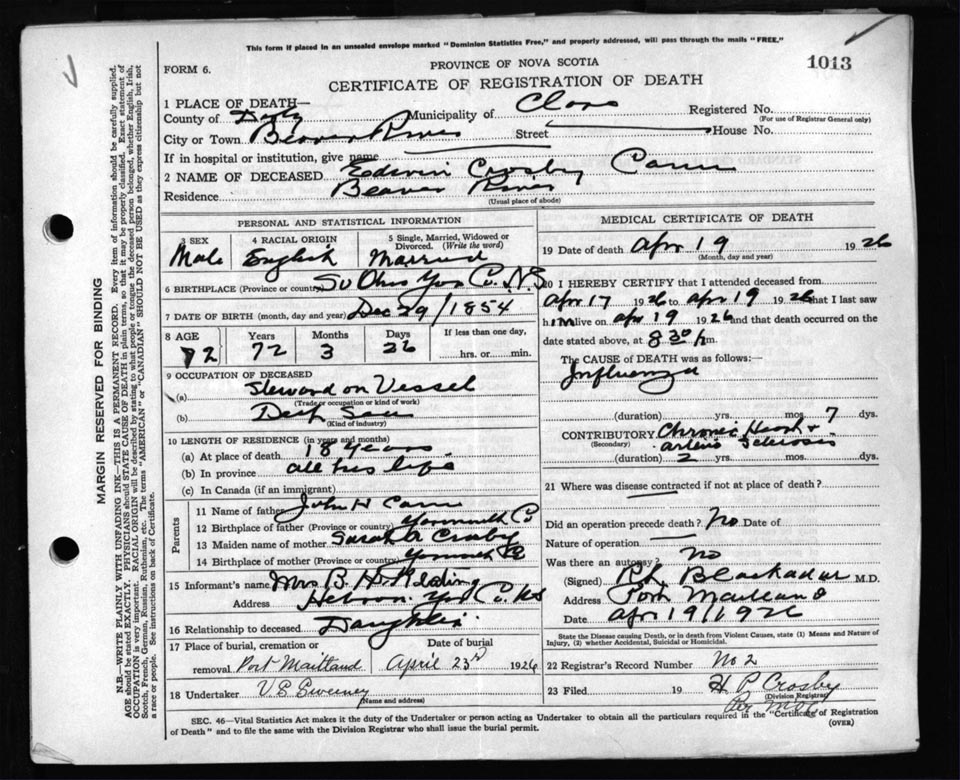 This form if placed in an unsealed envelope marked "Dominion Statistics Free," and properly addressed, will pass through the mails "FREE."
FORM 6.
PROVINCE OF NOVA SCOTIA
1013
CERTIFICATE OF REGISTRATION OF DEATH
MARGIN RESERVED FOR BINDING
N.B.—WRITE PLAINLY WITH UNFADING INK—THIS IS A PERMANENT RECORD. Every item of information should be carefully supplied.
AGE should be stated EXACTLY. PHYSICIANS should STATE CAUSE OF DEATH in plain terms, so that it may be properly classified. Exact statement of
OCCUPATION is very important. RACIAL ORIGIN will be described by stating to what people or tongue the deceased person belonged, whether English, Irish,
Scotch, French, German, Russian, Ruthenian, etc. The terms "AMERICAN" or "CANADIAN" SHOULD NOT BE USED as they express citizenship but not
a race or people. See instructions on back of Certificate.
1 PLACE OF DEATH—
County of Digby Municipality of Clare Registered No.
(For use of Registrar General only)
City or Town Beaver River Street House No.
If in hospital or institution, give name
2 NAME OF DECEASED Edwin Crosby Cann
Residence Beaver River
(Usual place of abode)
PERSONAL AND STATISTICAL INFORMATION
3 SEX
Male
4 RACIAL ORIGIN
English
5 Single, Married, Widowed or
Divorced. (Write the word)
Married
6 BIRTHPLACE (Province or country) Yar Co. N.S
7 DATE OF BIRTH (month, day and year) Dec 29/1854
8 AGE Years Months Days If less than one day,
72 72 3 26 hrs. or min.
9 OCCUPATION OF DECEASED
(a) Steward on Vessel
(Trade or occupation or kind of work)
(b) Deep Sea
(Kind of industry)
10 LENGTH OF RESIDENCE (in years and months)
(a) At place of death 18 years
(b) In province all his life
(c) In Canada (if an immigrant)
Parents
11 Name of father John H Cann
12 Birthplace of father (Province or country) Yarmouth Co
13 Maiden name of mother Sarah A Crosby
14 Birthplace of mother (Province or country) Yarmouth Co
15 Informant's name Mrs B. H. Keating
Address Hebron Yar Co. NS
16 Relationship to deceased Daughter
17 Place of burial, cremation or Date of burial
removal Port Maitland April 23rd 1926
18 Undertaker V S Sweeney
(Name and address)
MEDICAL CERTIFICATE OF DEATH
19 Date of death Apr 19 1926
(Month, day and year)
20 I HEREBY CERTIFY that I attended deceased from
Apr 17 1926 to Apr 19 1926 that I last saw
him alive on Apr 19 1926 and that death occurred on the
date stated above, at 8 30 p m.
The CAUSE of DEATH was as follows:—
Influenza
(duration) yrs. mos. 7 dys.
CONTRIBUTORY Chronic Heart +
(Secondary) arterio Sclerosis
(duration) 2 yrs. mos. dys.
21 Where was disease contracted if not at place of death?
Did an operation precede death? No Date of
Nature of operation
Was there an autopsy? No
(Signed) Blackadar M.D.
Address Port Maitland
Date Apr 19/1926
State the Disease causing Death, or in death from Violent Causes, state (1) Means and Nature of
Injury, (2) whether Accidental, Suicidal or Homicidal.
22 Registrar's Record Number No 2
23 Filed 19 H P Crosby
(Division Registrar)
SEC. 46—Vital Statistics Act makes it the duty of the Undertaker or person acting as Undertaker to obtain all the particulars required in the "Certificate of Registration
of Death" and to file the same with the Division Registrar who shall issue the burial permit.
(OVER)